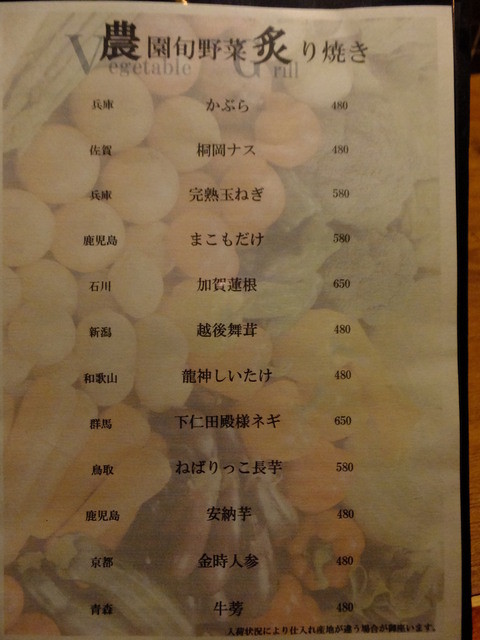 農園旬野菜炙り焼き
Vegetable Grill
兵庫 かぶら 480
佐賀 桐岡ナス 480
兵庫 完熟玉ねぎ 580
鹿児島 まこもだけ 580
石川 加賀蓮根 650
新潟 越後舞茸 480
和歌山 龍神しいたけ 480
群馬 下仁田殿様ネギ 650
鳥取 ねばりっこ長芋 580
鹿児島 安納芋 480
京都 金時人参 480
青森 牛蒡 480
入荷状況により仕入れ産地が違う場合が御座います。